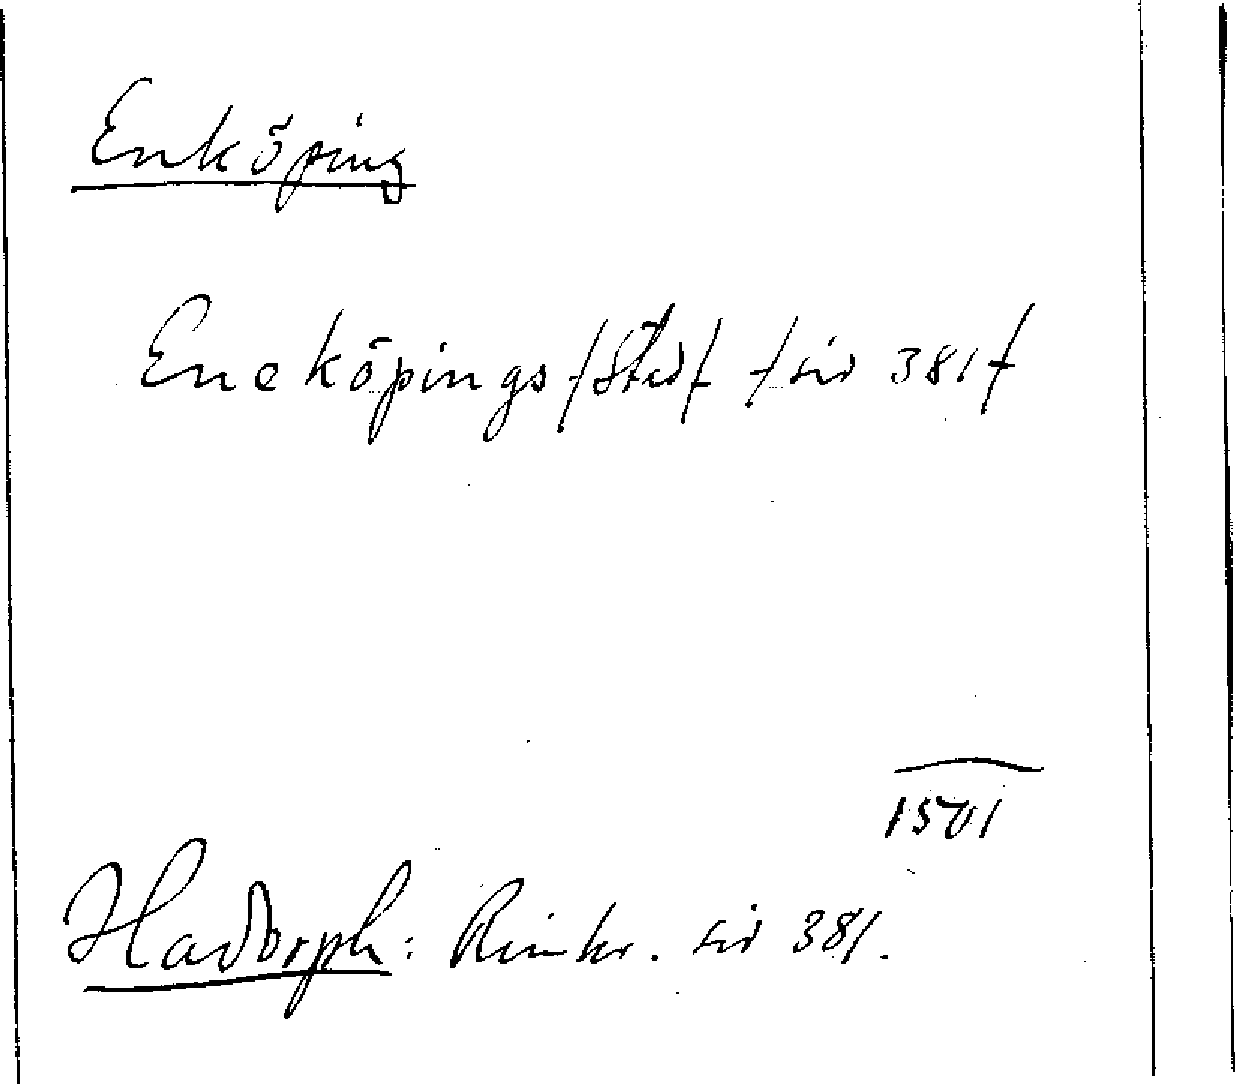 Enköping
Eneköpings /Sted/ /sid 381/
1501
Hadorph: Rimkr. sid 381.